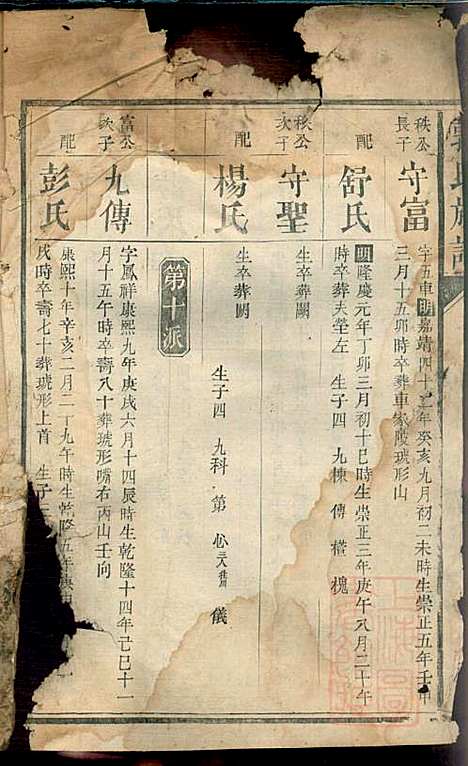 氏族譜
秩公長子
守富
字五車明嘉靖四十二年癸亥九月初二未時生崇正五年壬申
三月十五卯時卒葬車家殿琥形山
配
舒氏
明隆慶元年丁卯三月初十巳時生崇正三年庚午八月二十午
時卒葬夫塋左 生子四 九棟 傳 權 槐
秩公次子
守聖
生卒葬闕
配
楊氏
生卒葬闕
生子四 九科 第 心 儀
第十派
富公次子
九傳
字鳳祥康熙九年庚戌六月十四辰時生乾隆十四年己巳十一
月十五午時卒壽八十葬琥形嘴右丙山壬向
配
彭氏
康熙十年辛亥二月二十九午時生乾隆五年庚申
戌時卒壽七十葬琥形上首 生子三